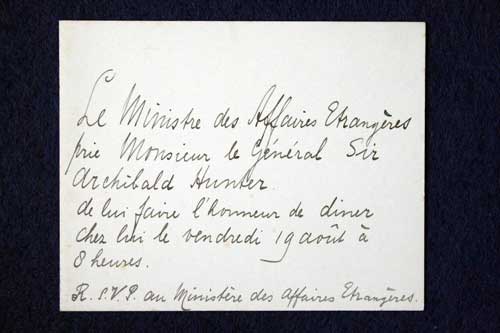 Le Ministre des Affaires Etrangères
prie Monsieur le Général Sir
Archibald Hunter.
de lui faire l'honneur de diner
chez lui le vendredi 19 août à
8 heures.
R.S.V.P. au Ministère des Affaires Etrangères.